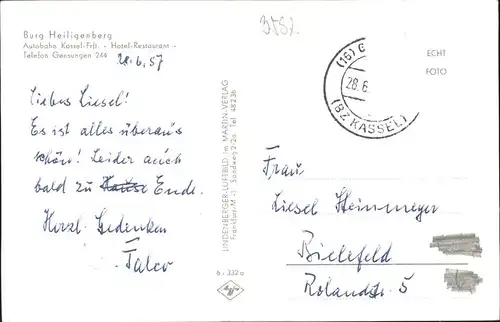 Burg Heiligenberg
Autobahn Kassel-Frft. - Hotel-Restaurant -
Telefon Gensungen 244
28.6.57
Liebes Liesel!
Es ist alles überaus
schön! Leider auch
bald zu Hause Ende.
Herzl. Gedenken
Falco
LINDENBERGER-LUFTBILD im MARTIN-VERLAG
Frankfurt/M -
Sandweg 2/2a
Tel 48236
6 - 332a
Agfa
(16) G
28.6.
(BZ KASSEL)
ECHT
FOTO
Frau
Liesel Heinmeyer
Bielefeld
Rolandstr. 5